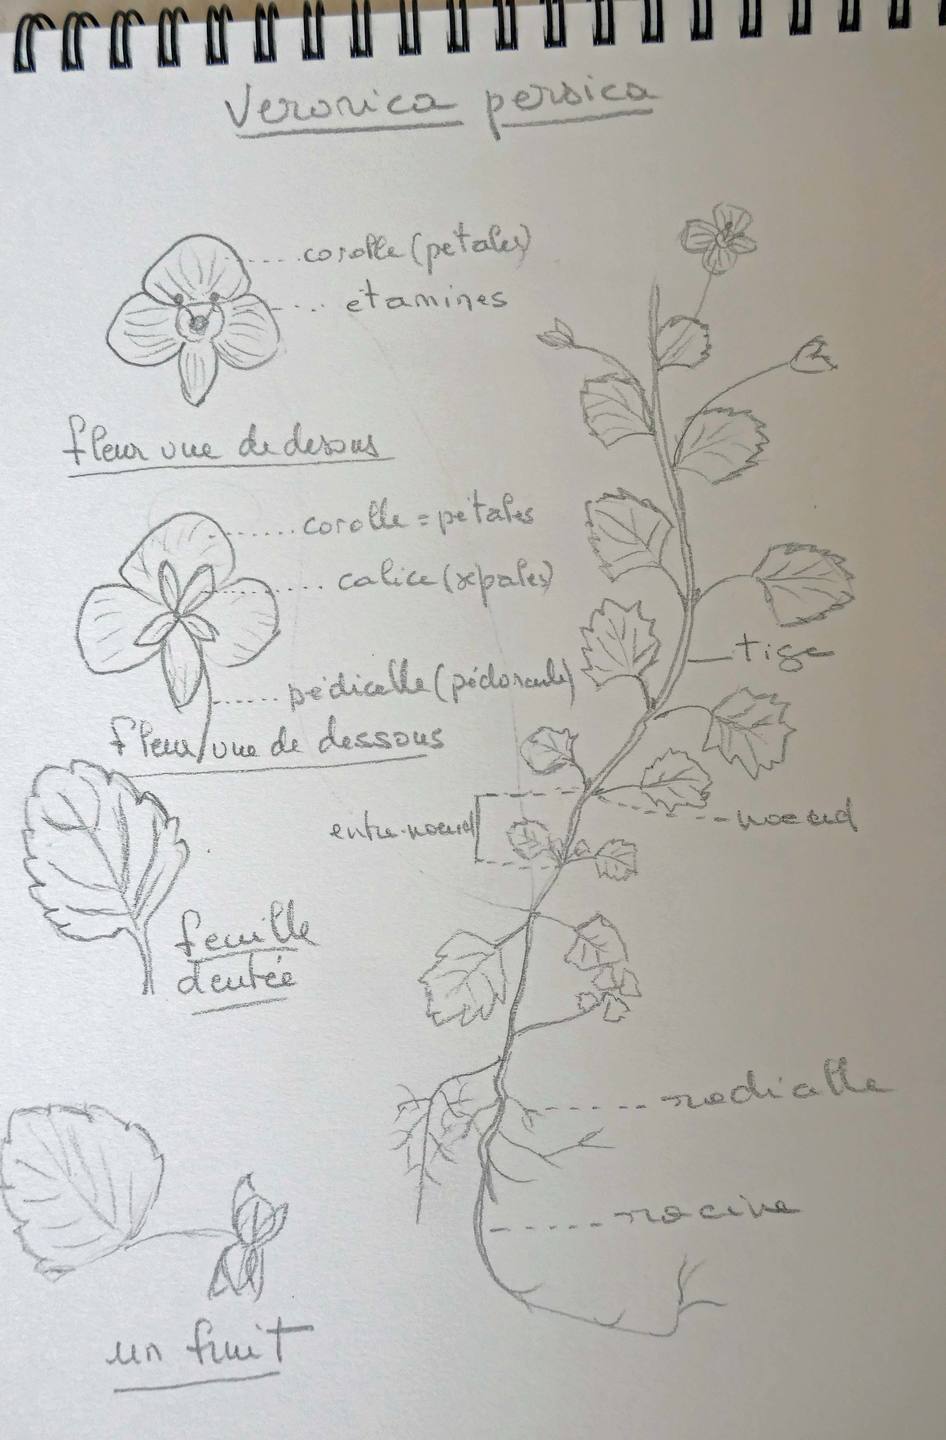 Veronica persica
corolle (pétales)
étamines
fleur vue de dessus
corolle = pétales
calice (sépales)
pédicelle (pédoncule)
fleur vue de dessous
tige
entre-noeud
noeud
feuille
dentée
radicelle
racine
un fruit